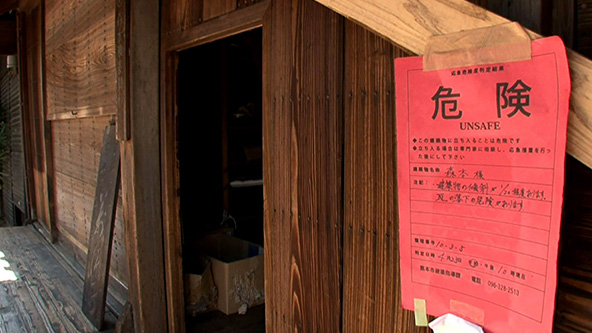 応急危険度判定結果
危険
UNSAFE
●この建築物に立ち入ることは危険です
●立ち入る場合は専門家に相談し、応急措置を行った後にして下さい
建築物名称 森本 様
注記:
建築物の傾斜が 1/20 程度あります。
瓦の落下の危険があります
整理番号 10-3-5
判定日時 4月22日
熊本市建築指導課 電話 096-328-2513